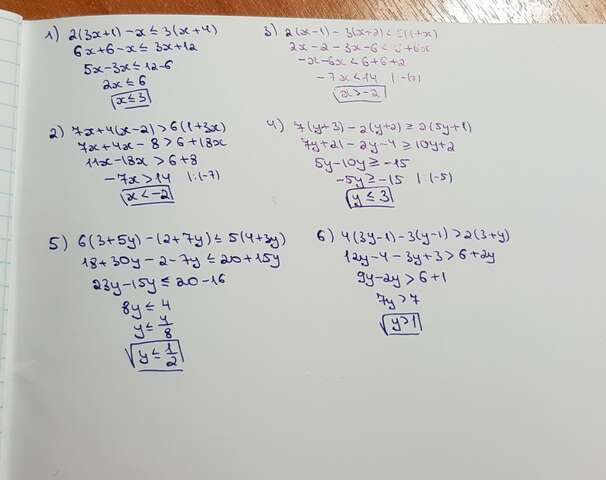 1) 2(3x+1) -x ≤ 3(x+4)
6x+6-x ≤ 3x+12
5x-3x ≤ 12-6
2x ≤ 6
x ≤ 3
2) 7x+4(x-2) > 6(1+3x)
7x+4x-8 > 6+18x
11x-18x > 6+8
-7x > 14 |:(-7)
x < -2
3) 2(x-1) - 3(x+2) < 6(1+x)
2x-2-3x-6 < 6+6x
-x-6x < 6+6+2
-7x < 14 |:(-7)
x > -2
4) 7(y+3) - 2(y+2) ≥ 2(5y+1)
7y+21-2y-4 ≥ 10y+2
5y-10y ≥ -15
-5y ≥ -15 |:(-5)
y ≤ 3
5) 6(3+5y) -(2+7y) ≤ 5(4+3y)
18+30y-2-7y ≤ 20+15y
23y-15y ≤ 20-16
8y ≤ 4
y ≤ 4/8
y ≤ 1/2
6) 4(3y-1) -3(y-1) > 2(3+y)
12y-4-3y+3 > 6+2y
9y-2y > 6+1
7y > 7
y > 1